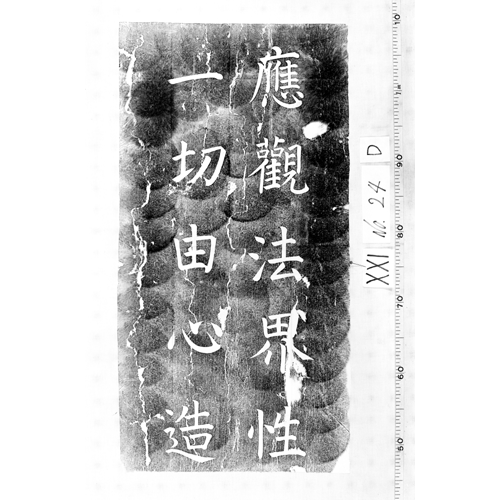 應觀法界性
一切由心造
XXI No. 24 D
10
90
80
70
60
50